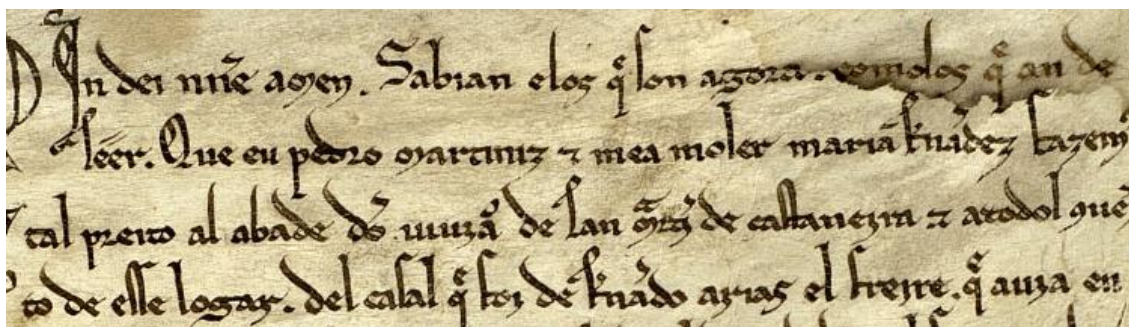 In dei nn̄e amen. Sabian elos q̄ son agora. comolos q̄ an de
seer. Que eu pedro martiniz ⁊ mea moler maria fn̄adez fazem
tal preito al abade do de san de castaneyra ⁊ atodol
to de esse logar. del casal q̄ foy de fn̄ado arias el freyre. q̄ auia en